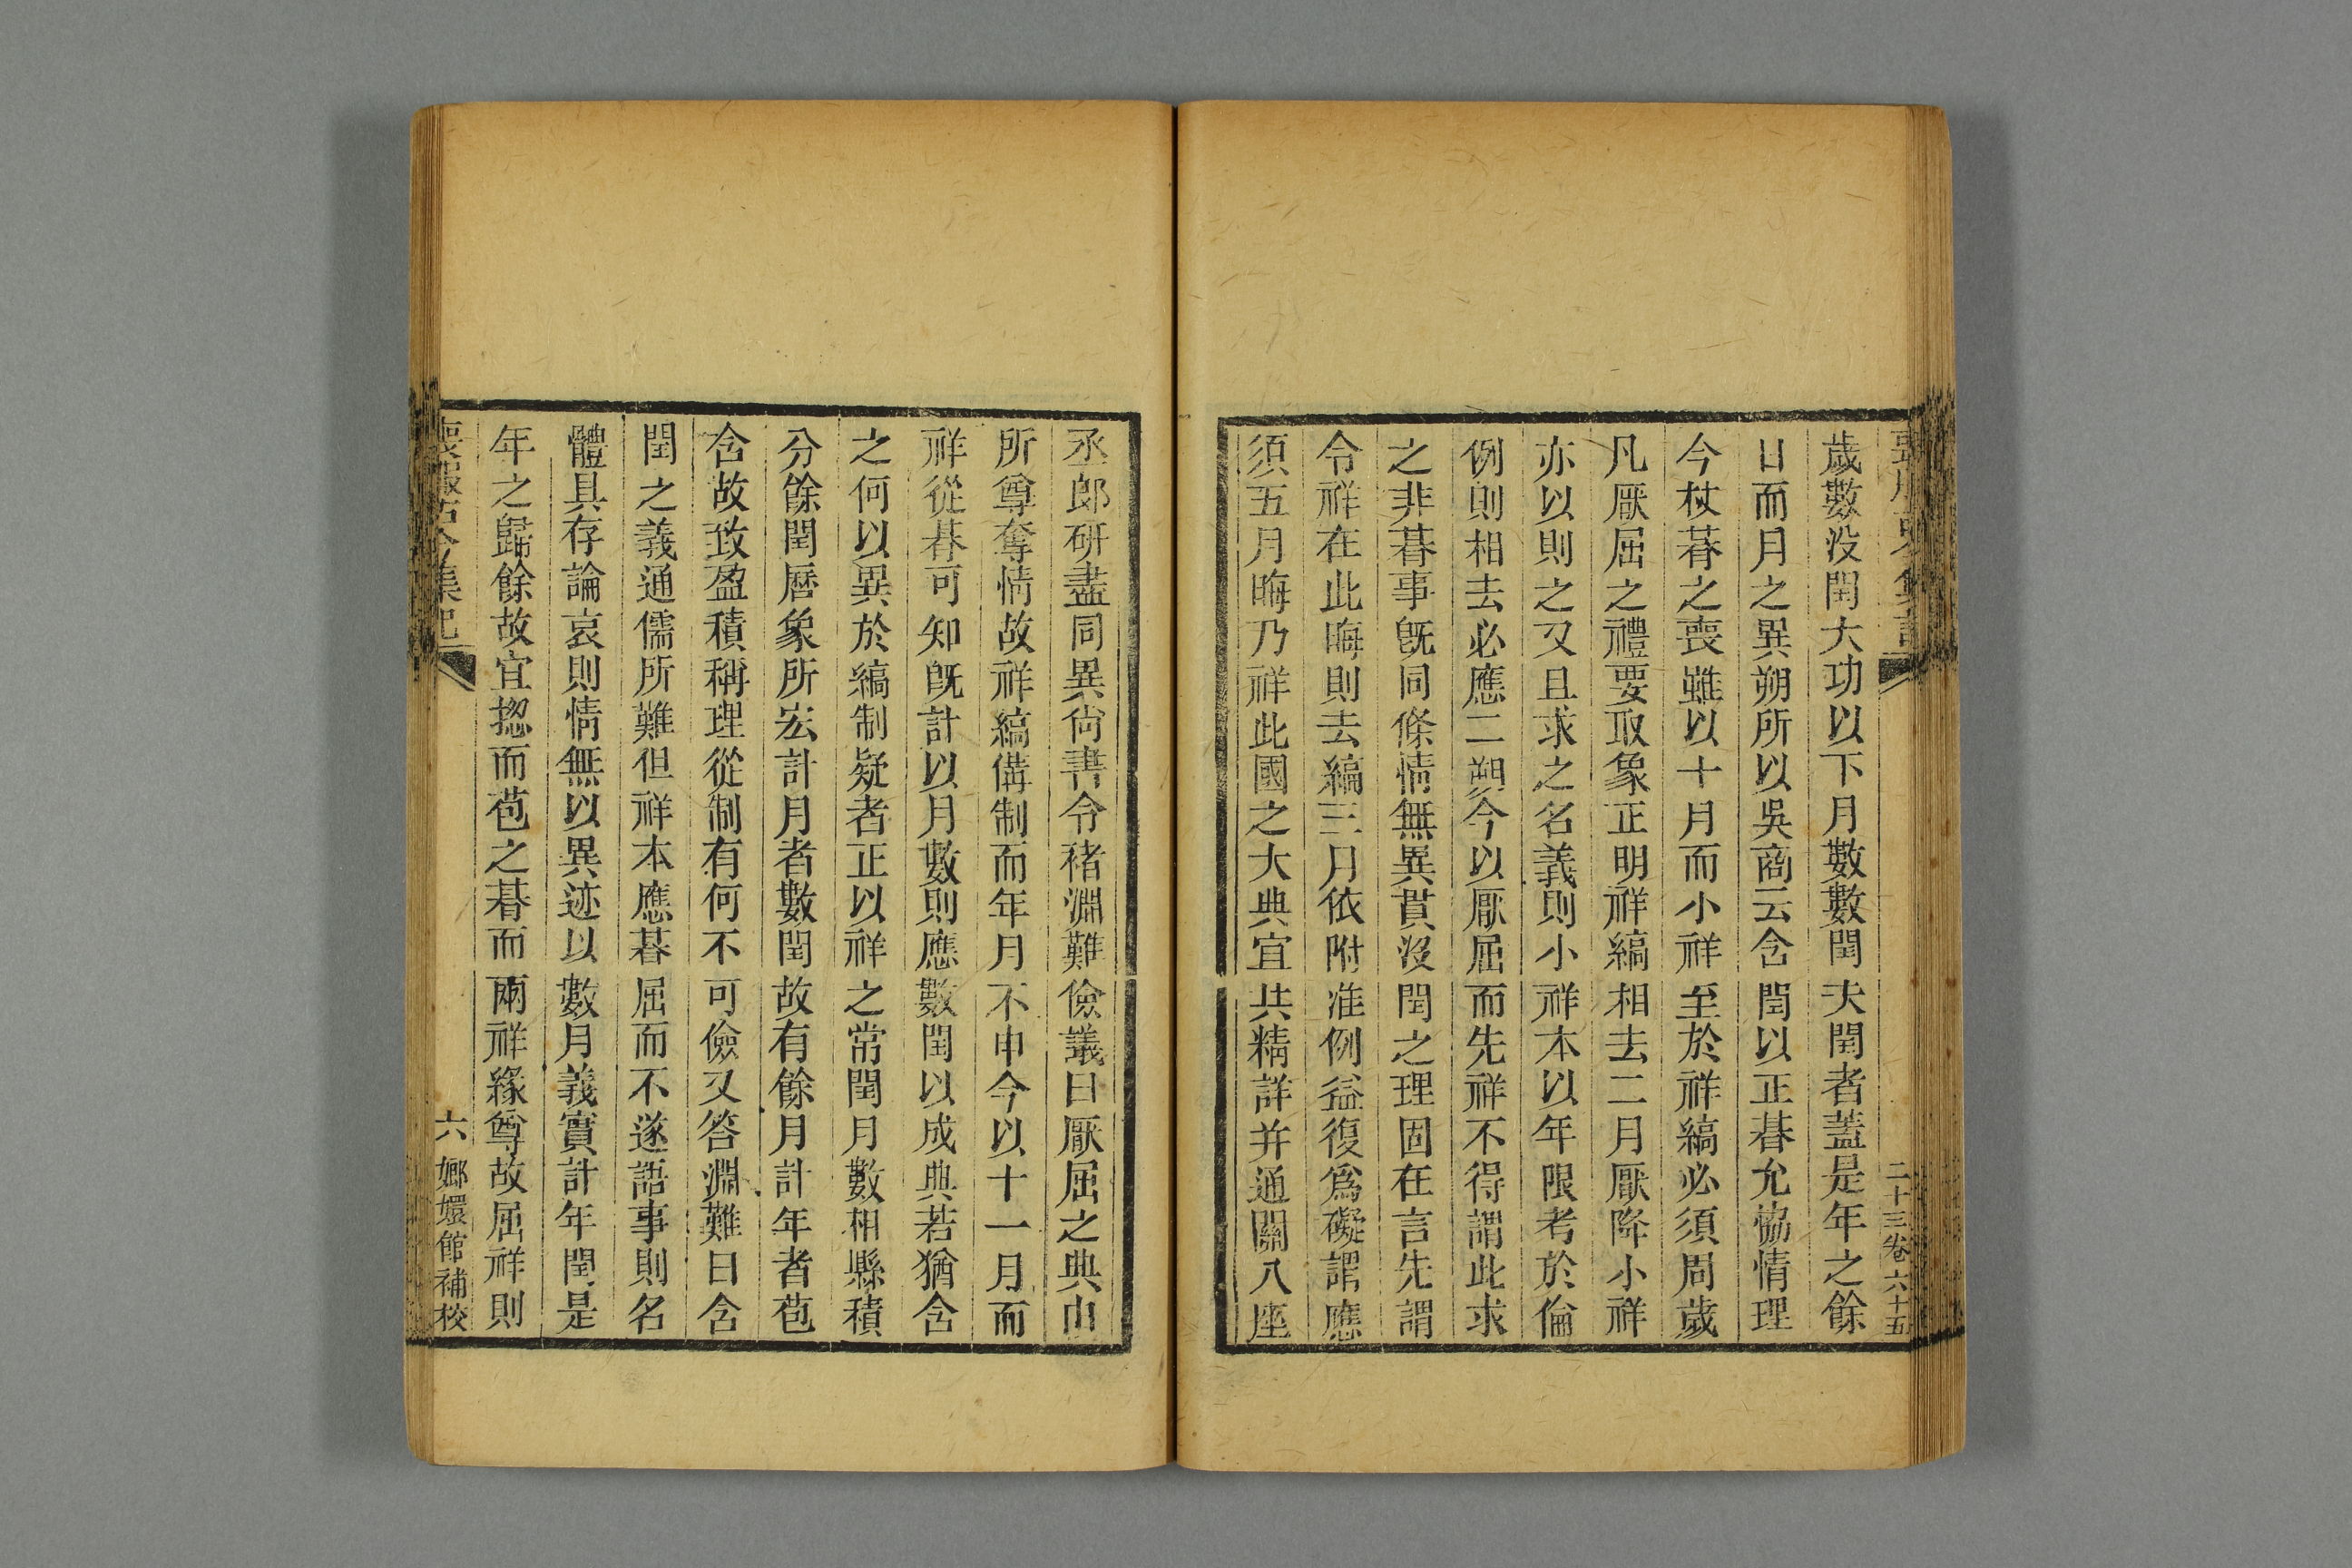 二十三卷六十五
歲數没閏大功以下月數數閏夫閏者蓋是年之餘
日而月之異朔所以吳商云含閏以正朞允協情理
今杖朞之喪雖以十月而小祥至於祥縞必須周歲
凡厭屈之禮要取象正明祥縞相去二月厭降小祥
亦以則之又且求之名義則小祥本以年限考於倫
例則相去必應二朔今以厭屈而先祥不得謂此求
之非朞事旣同條情無異貫没閏之理固在言先謂
令祥在此晦則去縞三月依附准例益復爲礙謂應
須五月晦乃祥此國之大典宜共精詳并通關八座
丞郎研盡同異尙書令褚淵難儉議曰厭屈之典由
所尊奪情故祥縞備制而年月不申今以十一月而
祥從朞可知旣計以月數則應數閏以成典若猶含
之何以異於縞制疑者正以祥之常閏月數相縣積
分餘閏曆象所宏計月者數閏故有餘月計年者苞
含故致盈積稱理從制有何不可儉又答淵難曰含
閏之義通儒所難但祥本應朞屈而不遂語事則名
體具存論哀則情無以異迹以數月義實計年閏是
年之歸餘故宜揔而苞之朞而兩祥緣尊故屈祥則
喪服古今集記
六 嫏嬛館補校